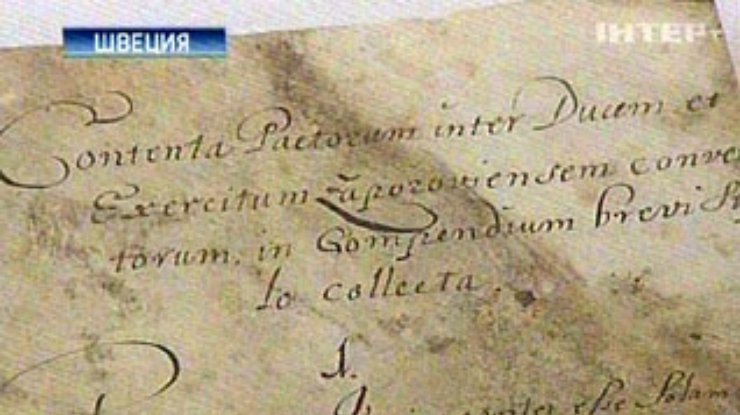 ШВЕЦИЯ
ІНТЕР
Contenta Pactorum inter Ducem et
Exercitum Zaporoviensem conven
torum, in Compendium brevi Sty
lo collecta.
1.
esse Solam